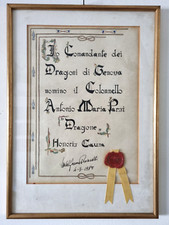 Io Comandante dei
Dragoni di Genova
nomino il Colonnello
Antonio Maria
Dragone
Honoris Causa